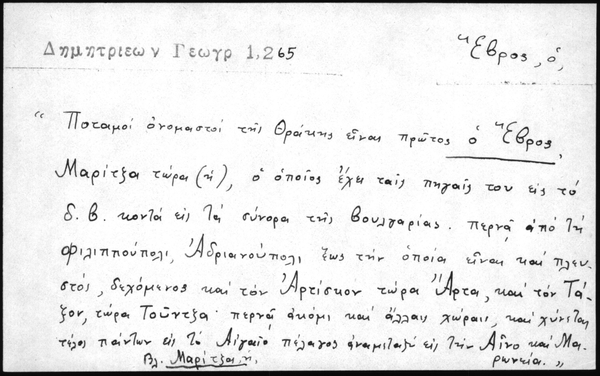 Δημητριεων Γεωγρ 1,265
Ἕβρος, ὁ,
“ Ποταμοὶ ὀνομαστοὶ τῆς Θρᾴκης εἶναι πρῶτος ὁ Ἕβρος,
Μαρίτζα τώρα (ἡ), ὁ ὁποῖος ἔχει ταῖς πηγαῖς του εἰς τὸ
δ. β. κοντὰ εἰς τὰ σύνορα τῆς Βουλγαρίας. περνᾷ ἀπὸ τὴ
Φιλιππούπολι, Ἀδριανούπολι ἕως τὴν ὁποία εἶναι καὶ πλευ-
στός, δεχόμενος καὶ τὸν Ἀρτίσκον τώρα Ἄρτα, καὶ τὸν Τά-
ξον, τώρα Τοῦντζα· περνᾷ ἀκόμι καὶ ἄλλαις χώραις, καὶ χύνεται
τέλος πάντων εἰς τὸ Αἰγαῖο πέλαγος ἀναμεταξὺ εἰς τὴν Αἶνο καὶ Μα-
ρωνεία. „
Βλ. Μαρίτζα ἡ.